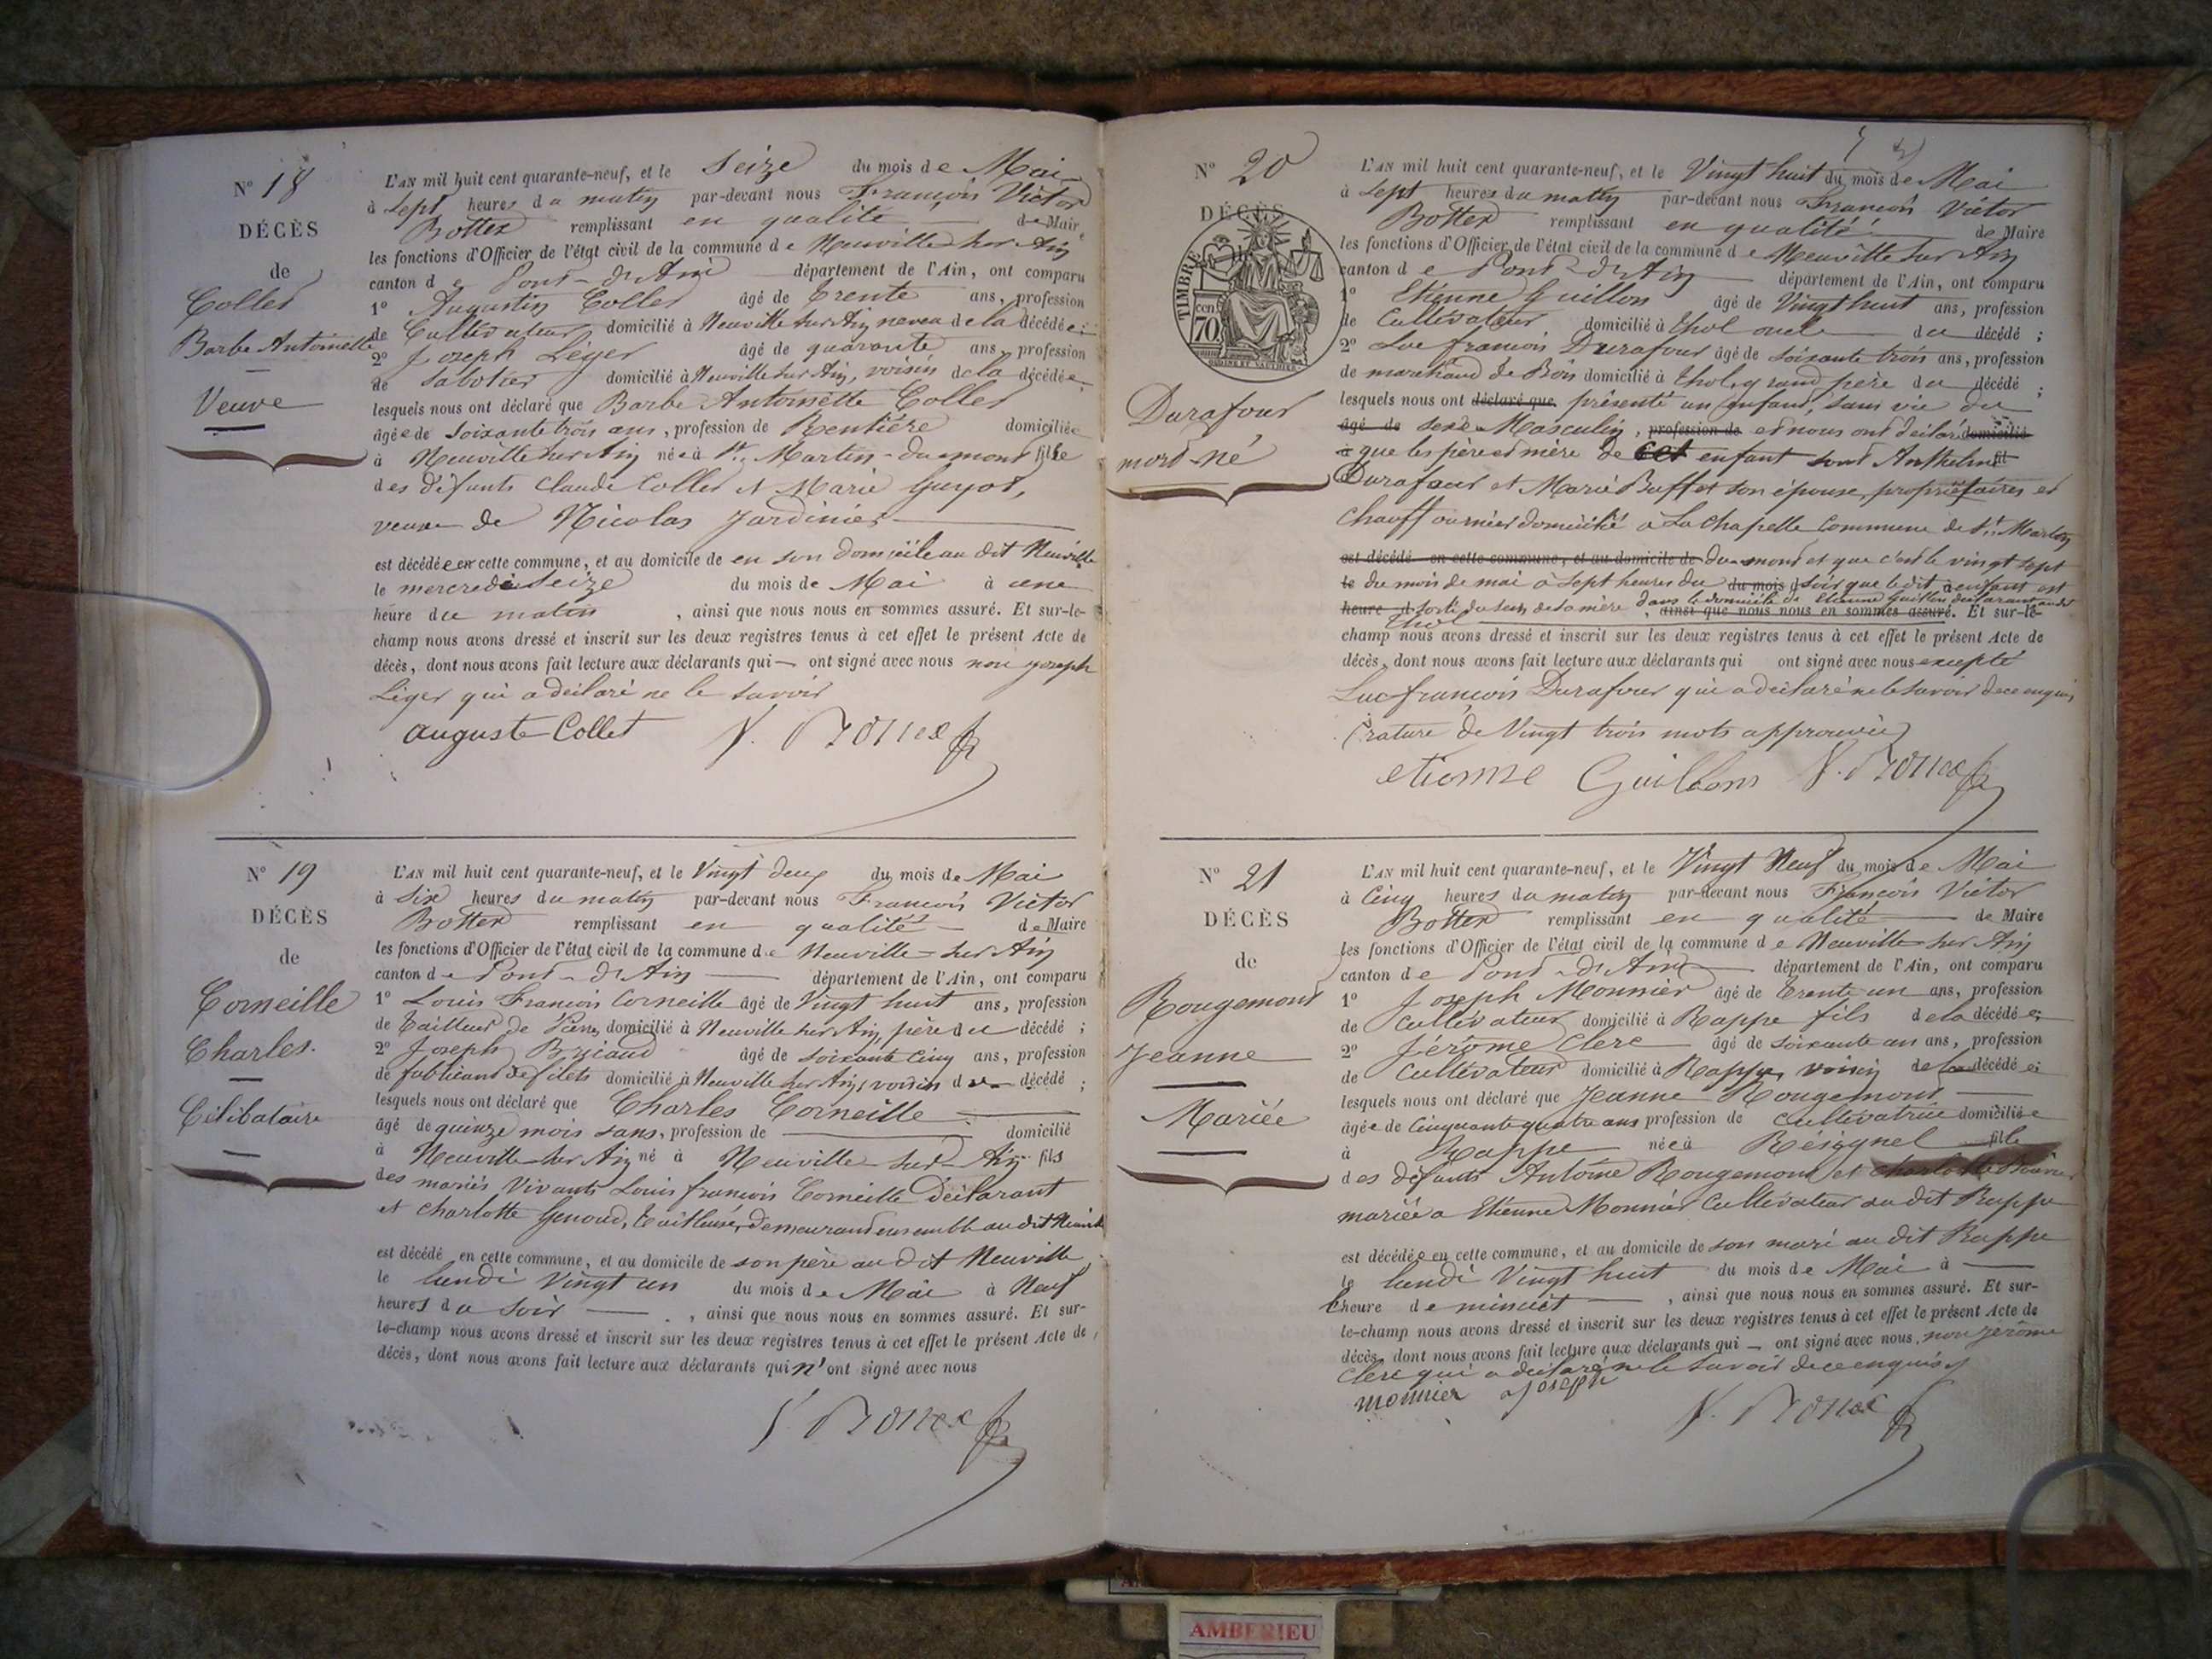 N° 18
DÉCÈS
de
Collet
Barbe Antoinette
Veuve
L'AN mil huit cent quarante-neuf, et le Seize du mois de Mai
à Sept heures du matin par-devant nous François Victor
Bottex remplissant en qualité de Maire
les fonctions d'Officier de l'état civil de la commune de Neuville sur Ain
canton de Pont-d'Ain département de l'Ain, ont comparu
1° Augustin Collet âgé de trente ans, profession
de Cultivateur domicilié à Neuville sur Ain neveu de la décédée;
2° Joseph Léger âgé de quarante ans, profession
de sabotier domicilié à Neuville sur Ain, voisin de la décédée;
lesquels nous ont déclaré que Barbe Antoinette Collet
âgée de soixante trois ans, profession de Rentière domiciliée
à Neuville sur Ain née à St. Martin-du-mont fille
des défunts Claude Collet et Marie Guyot,
veuve de Nicolas Jardinier
est décédée en cette commune, et au domicile de en son domicile au dit Neuville
le mercredi seize du mois de Mai à une
heure du matin, ainsi que nous nous en sommes assuré. Et sur-le-
champ nous avons dressé et inscrit sur les deux registres tenus à cet effet le présent Acte de
décès, dont nous avons fait lecture aux déclarants qui ont signé avec nous non Joseph
Léger qui a déclaré ne le savoir
auguste Collet V. Bottex
N° 19
DÉCÈS
de
Corneille
Charles.
Célibataire
L'AN mil huit cent quarante-neuf, et le Vingt deux du mois de Mai
à Six heures du matin par-devant nous François Victor
Bottex remplissant en qualité de Maire
les fonctions d'Officier de l'état civil de la commune de Neuville-sur Ain
canton de Pont-d'Ain département de l'Ain, ont comparu
1° Louis François Corneille âgé de Vingt huit ans, profession
de tailleur de Pierre, domicilié à Neuville sur Ain, père du décédé;
2° Joseph âgé de soixante cinq ans, profession
de fabricant de filets domicilié à Neuville sur Ain, voisin du décédé;
lesquels nous ont déclaré que Charles Corneille
âgé de quinze mois sans, profession de domicilié
à Neuville-sur Ain né à Neuville-sur-Ain fils
des mariés Vivants Louis françois Corneille Déclarant
et Charlotte Genoud, tailleuse, demeurant ensemble au dit Neuville
est décédé en cette commune, et au domicile de son père au dit Neuville
le lundi Vingt un du mois de Mai à Neuf
heures du soir, ainsi que nous nous en sommes assuré. Et sur-
le-champ nous avons dressé et inscrit sur les deux registres tenus à cet effet le présent Acte de
décès, dont nous avons fait lecture aux déclarants qui n'ont signé avec nous
V. Bottex
N° 20
DÉCÈS
TIMBRE
70 cen
Durafour
mort-né
L'AN mil huit cent quarante-neuf, et le Vingt huit du mois de Mai
à Sept heures du matin par-devant nous François Victor
Bottex remplissant en qualité de Maire
les fonctions d'Officier de l'état civil de la commune de Neuville sur Ain
canton de Pont-d'Ain département de l'Ain, ont comparu
1° Etienne Guillon âgé de Vingt huit ans, profession
de Cultivateur domicilié à Thol oncle du décédé;
2° Luc françois Durafour âgé de soixante trois ans, profession
de marchand de Bois domicilié à Thol, grand père du décédé;
lesquels nous ont déclaré que présenté un enfant, sans vie du
âgé de sexe Masculin, profession de et nous ont déclaré domicilié
à que les père et mère de cet enfant sont Anthelme fil
Durafour et Marie Buffet son épouse, propriétaires et
Chauffournier domicilié à La Chapelle Commune de St. Martin
est décédé en cette commune, et au domicile de Du-mont et que c'est le vingt sept
le du mois de mai a sept heures du du mois soir que le dit à enfant est
heure d sorti du sein de sa mère dans le domicile de Etienne Guillon déclarant audit
Thol ainsi que nous nous en sommes assuré. Et sur-le-
champ nous avons dressé et inscrit sur les deux registres tenus à cet effet le présent Acte de
décès, dont nous avons fait lecture aux déclarants qui ont signé avec nous excepté
Luc françois Durafour qui a déclaré ne le savoir de ce enquis
(rature de Vingt trois mots approuvée)
etienne Guillon V. Bottex
N° 21
DÉCÈS
de
Rougemont
Jeanne
Mariée
L'AN mil huit cent quarante-neuf, et le Vingt Neuf du mois de Mai
à Cinq heures du matin par-devant nous François Victor
Bottex remplissant en qualité de Maire
les fonctions d'Officier de l'état civil de la commune de Neuville-sur Ain
canton de Pont-d'Ain département de l'Ain, ont comparu
1° Joseph Monnier âgé de trente un ans, profession
de Cultivateur domicilié à Rappe fils de la décédée;
2° Jérôme Clerc âgé de soixante un ans, profession
de Cultivateur domicilié à Rappe, voisin de la décédée;
lesquels nous ont déclaré que Jeanne Rougemont
âgée de Cinquante quatre ans profession de cultivatrice domiciliée
à Rappe née à Résignel fille
des défunts Antoine Rougemont et Charlotte
mariée a Etienne Monnier Cultivateur au dit Rappe
est décédée en cette commune, et au domicile de son mari au dit Rappe
le lundi Vingt huit du mois de Mai à
l'heure de minuit, ainsi que nous nous en sommes assuré. Et sur-
le-champ nous avons dressé et inscrit sur les deux registres tenus à cet effet le présent Acte de
décès, dont nous avons fait lecture aux déclarants qui ont signé avec nous, non Jérôme
Clerc qui a déclaré ne le savoir de ce enquis
monnier joseph V. Bottex
AMBERIEU